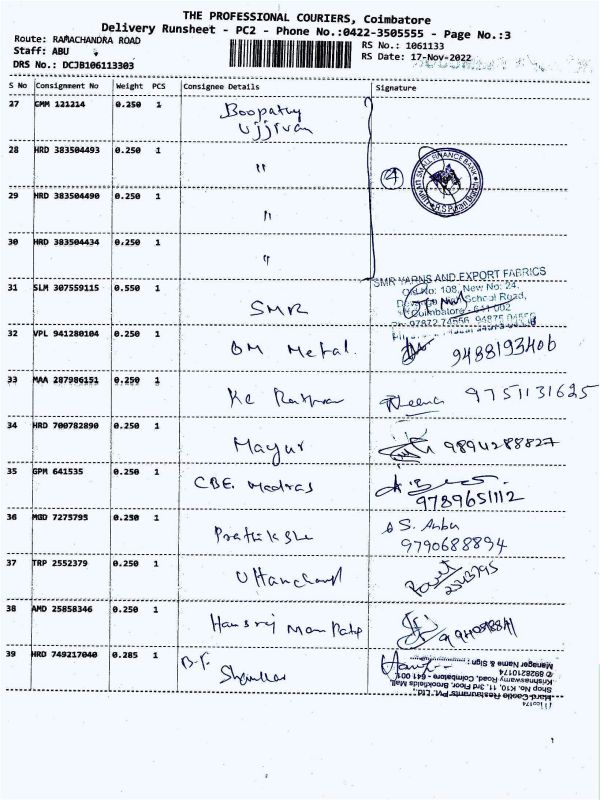 THE PROFESSIONAL COURIERS, Coimbatore
Delivery Runsheet - PC2 - Phone No.:0422-3505555 - Page No.:3
Route: RAMACHANDRA ROAD
Staff: ABU
DRS No.: DCJB106113303
RS No.: 1061133
RS Date: 17-Nov-2022
S No Consignment No Weight PCS Consignee Details Signature
27 CMM 121214 0.250 1 Boopathy
Ujjivan
28 HRD 383504493 0.250 1 "
4
SMALL FINANCE BANK
29 HRD 383504490 0.250 1 "
30 HRD 383504434 0.250 1 "
31 SLM 307559115 0.550 1 SMR
SMR YARNS AND EXPORT FABRICS
Old No: 108, New No: 24,
High School Road,
Coimbatore - 641 002
32 VPL 941280104 0.250 1 OM Metal. 9488193406
33 MAA 287986151 0.250 1 KC 9751131625
34 HRD 700782890 0.250 1 Mayur 9894288827
35 GPM 641535 0.250 1 CBE. Madras
9789651112
36 MGD 7275795 0.250 1 S. Anbu
9790688894
37 TRP 2552379 0.250 1 Uttamchand
38 AMD 25858346 0.250 1 Hansraj
39 HRD 749217040 0.285 1 B.F.
Manager Name & Sign :
✆ 8928210174
Krishnaswamy Road, Coimbatore - 641 001.
Shop No. K10, 11, 3rd Floor, Brookfields Mall,
Hard Castle Restaurants Pvt. Ltd.,
1